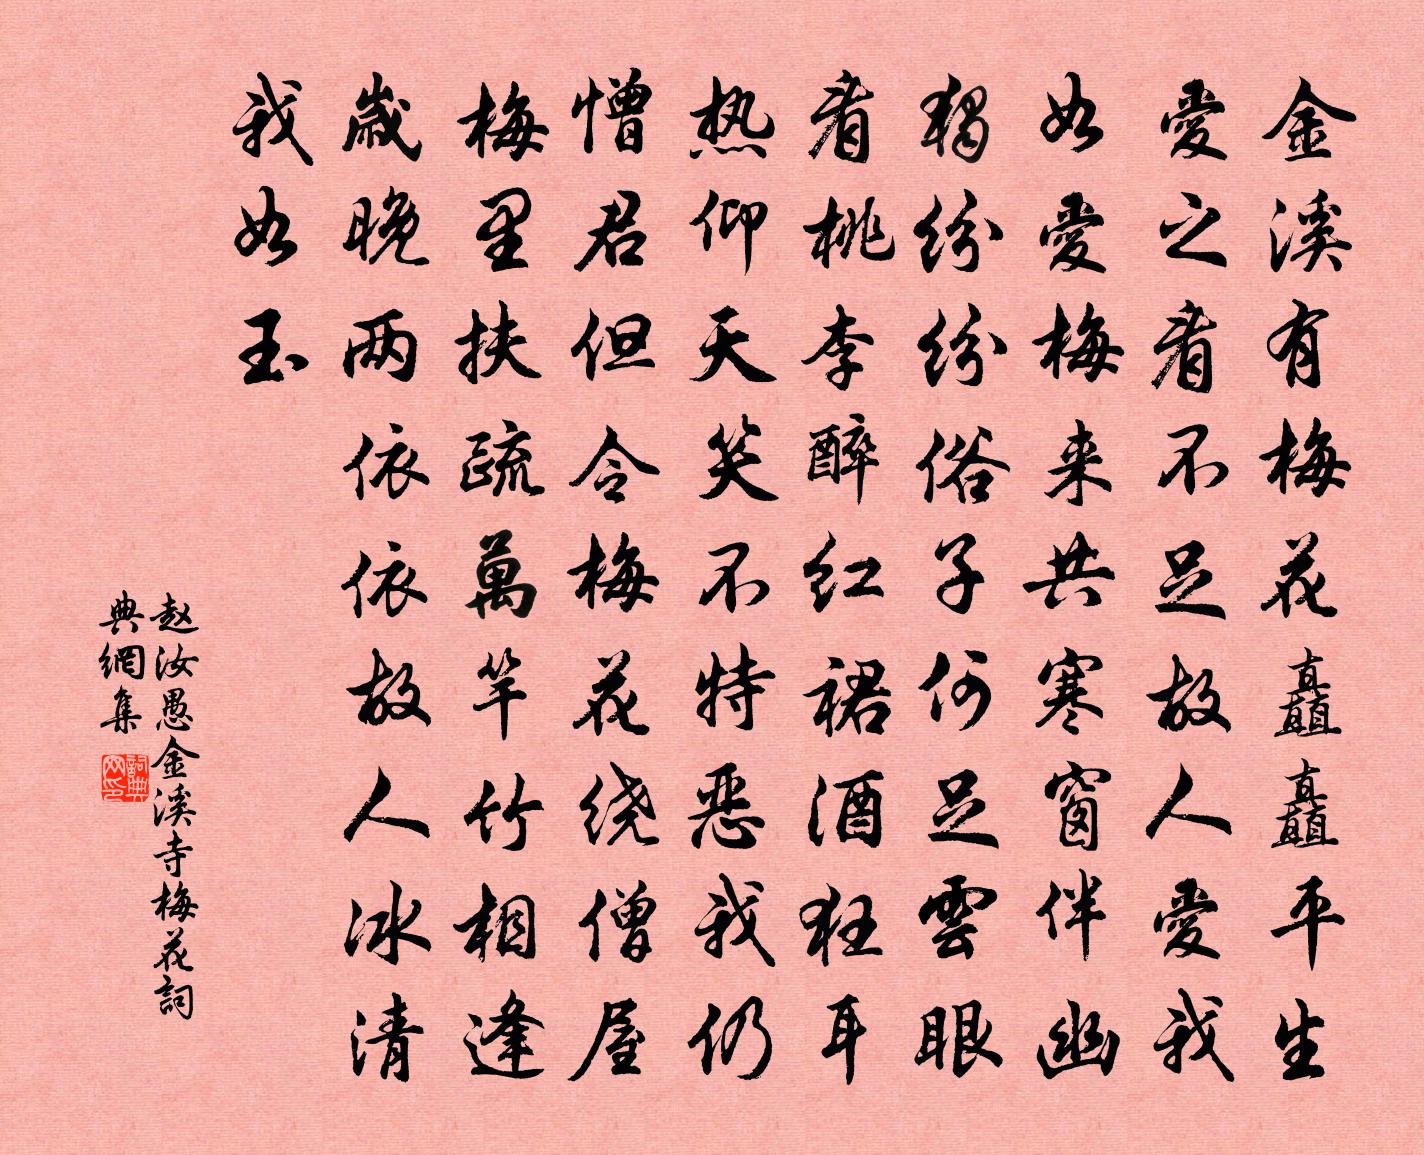 金溪有梅花矗矗平生
愛之看不足故人愛我
如愛梅来共寒窗伴幽
獨纷纷俗子何足雲眼
看桃李醉红裙酒狂耳
热仰天笑不特恶我仍
憎君但令梅花绕僧屋
梅里扶疏萬竿竹相逢
歲晚两依依故人冰清
我如玉
赵汝愚金溪寺梅花詞
典網集
詞典网印